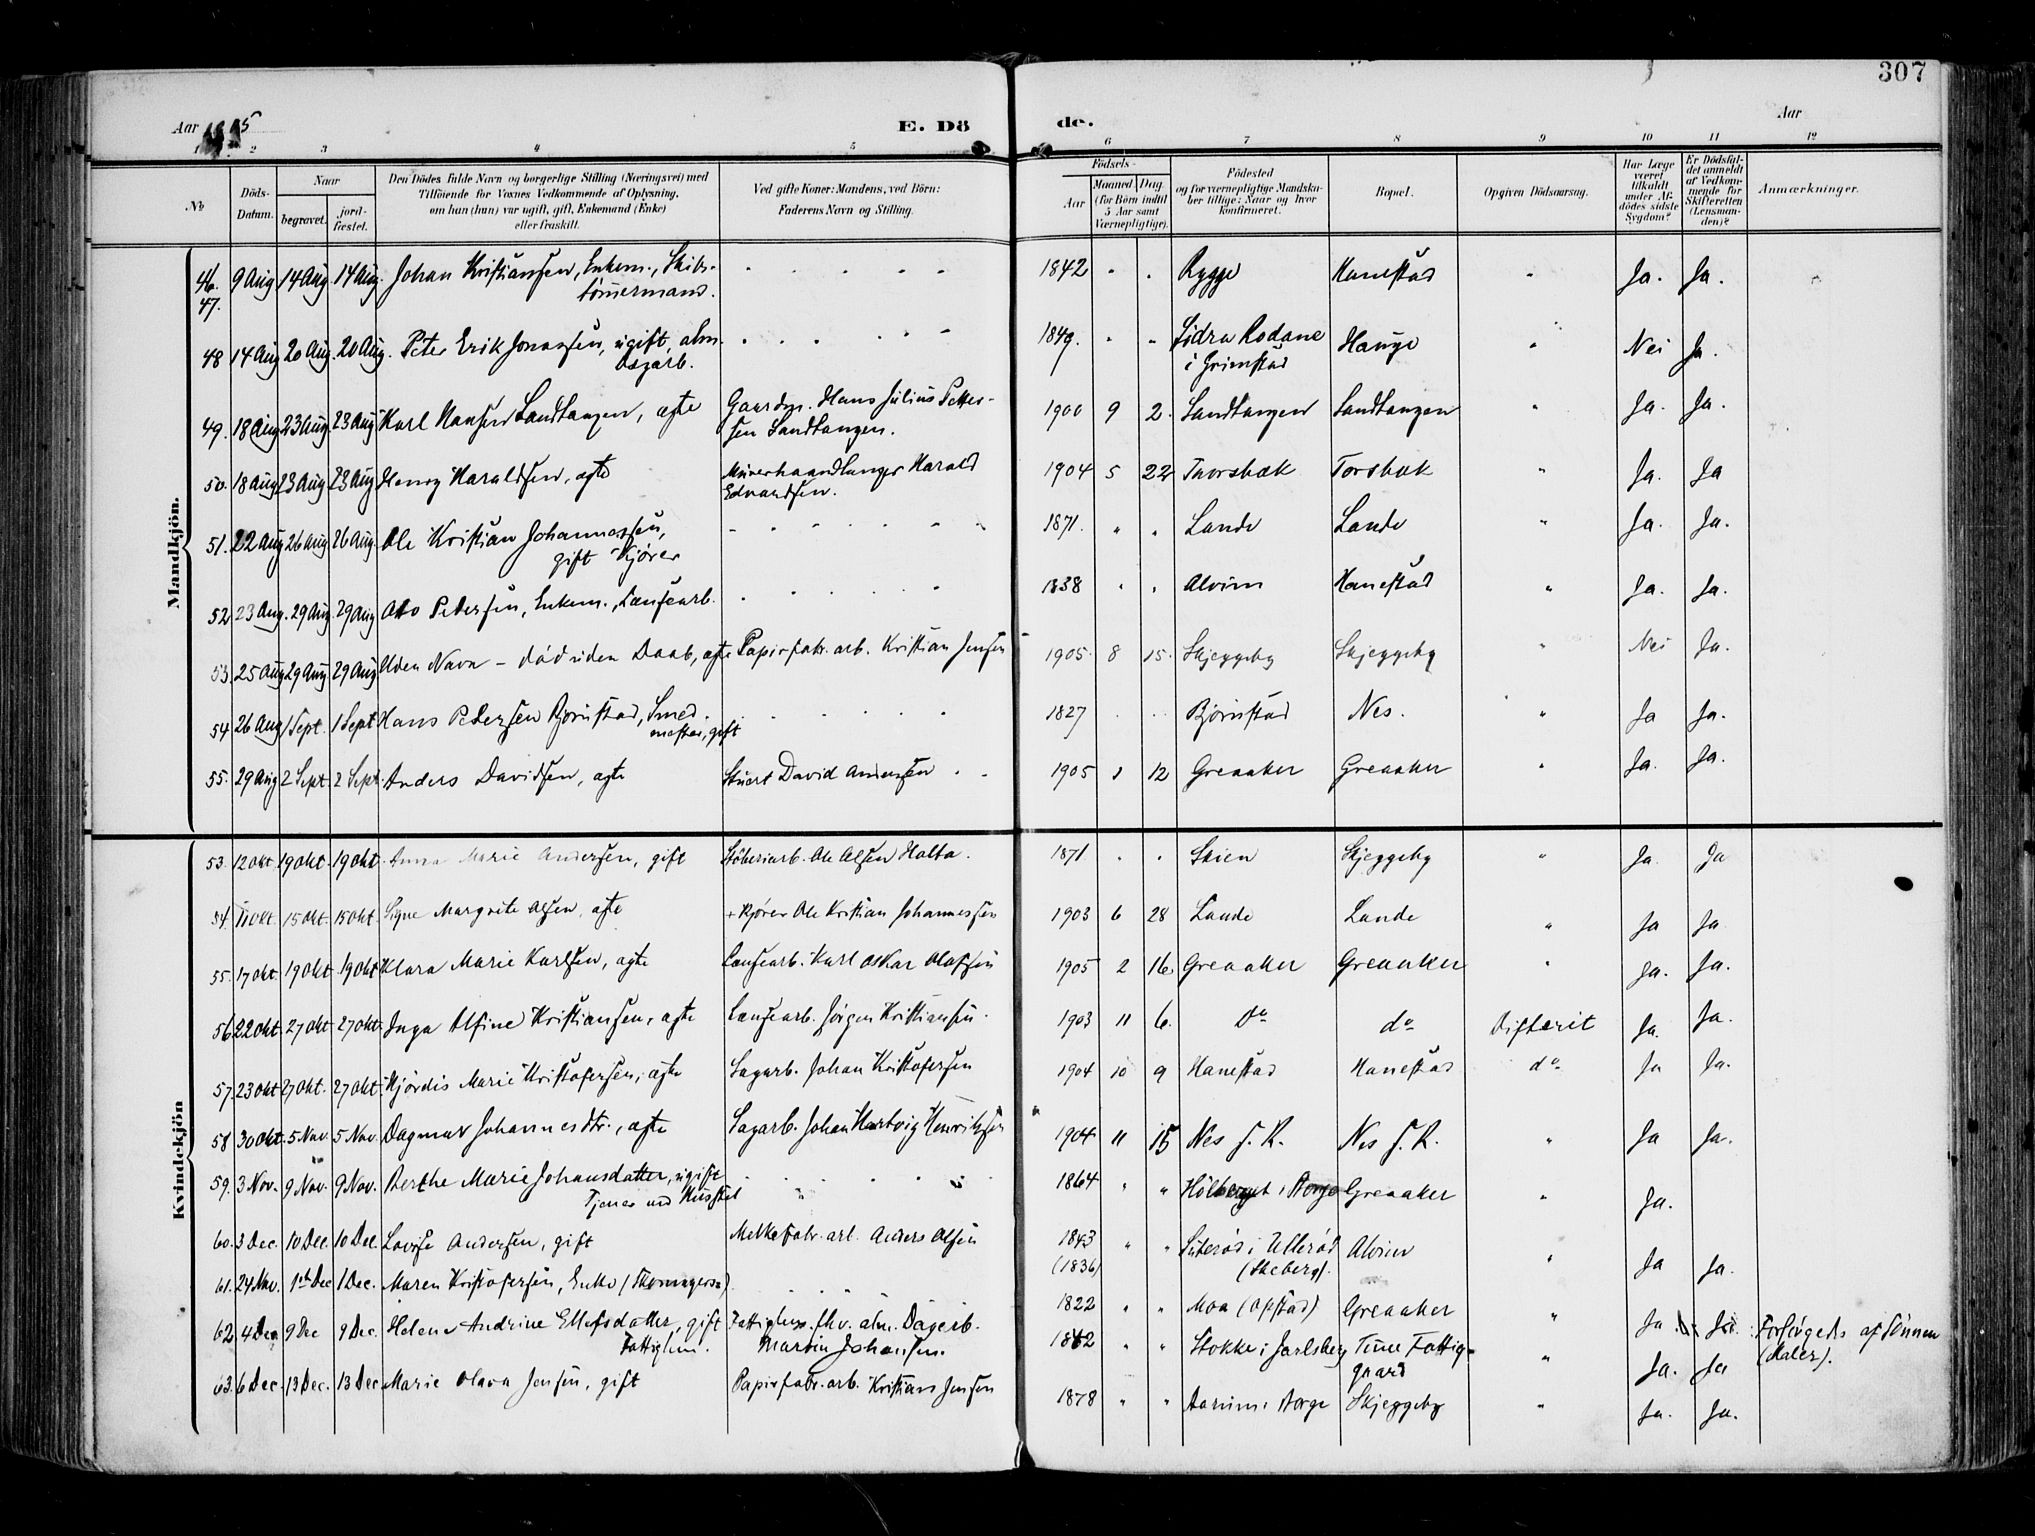 307
Aar 1905
E. Döde.
Aar
1 2 3 4 5 6 7 8 9 10 11 12
No
Döds-Datum.
Naar
begravet.
jord-fæstet.
Den Dödes fulde Navn og borgerlige Stilling (Næringsvei) med
Tilföiende for Voxnes Vedkommende af Oplysning,
om han (hun) var ugift, gift, Enkemand (Enke)
eller fraskilt.
Ved gifte Koner: Mandens, ved Börn:
Faderens Navn og Stilling.
Födsels-
Aar
Maaned Dag
(for Börn indtil
5 Aar samt
Værnepligtige).
Födested
og for værnepligtige Mandska-
ber tillige: Naar og hvor
konfirmeret.
Bopæl.
Opgiven Dödsaarsag.
Har Læge
været
tilkaldt
under Af-
dödes sidste
Sygdom?
Er Dödsfal-
det anmeldt
af Vedkom-
mende for
Skifteretten
(Lensman-
den)?
Anmærkninger.
Mandkjön.
46. 9 Aug 14 Aug 14 Aug. Johan Kristiansen, Enkem., Skibs- 1842 " " Rygge Hanestad " Ja. Ja.
47. tømermand.
48 14 Aug 20 Aug. 20 Aug. Peter Erik Jonassen, ugift, alm. 1849. " " Sidra Rodane Hauge " Nei Ja.
Dagarb. i Grimstad
49. 18 Aug 23 Aug. 23 Aug Karl Hansen Sandtangen, ægte Gaardm. Hans Julius Petter- 1900 9 2. Sandtangen Sandtangen " Ja. Ja.
sen Sandtangen.
50. 18 Aug 23 Aug 23 Aug Henry Haraldsen, ægte Murerhaandlanger Harald 1904 5 22 Torsbæk Torsbæk " Ja. Ja
Edvardsen.
51. 22 Aug 26 Aug 26 Aug. Ole Kristian Johannessen, 1871. " " Lande Lande " Ja. Ja.
gift Kjører
52 23 Aug. 29 Aug 29 Aug Otto Pedersen, Enkem., Lænsearb. 1838 " " Alvim Hanestad " Ja. Ja.
53. 25 Aug 29 Aug 29 Aug Uden Navn – død uden Daab, ægte Papirfabr.arb. Kristian Jensen 1905. 8 15. Skjeggeby Skjeggeby " Nei Ja.
54 26 Aug 1 Sept. 1 Sept Hans Pedersen Bjørnstad, Smed- 1827 Bjørnstad Nes. " Ja Ja.
mester, gift
55. 29 Aug 2 Sept. 2 Sept. Anders Davidsen, ægte Stuert David Andersen 1905 1 12 Greaaker Greaaker " Ja. Ja.
Kvindekjön
53. 12 Okt. 19 Okt. 19 Okt. Anna Marie Andersen, gift Støberiarb. Ole Olsen Holta. 1871. " " Skien Skjeggeby " Ja. Ja
54. 11 Okt. 15 Okt. 15 Okt. Signe Margrete Olsen, ægte + Kjører Ole Kristian Johannessen 1903 6 28 Lande Lande " Ja Ja
55. 17 Okt. 19 Okt. 19 Okt Klara Marie Karlsen, ægte Lænsearb. Karl Oskar Olafsen 1905 2 16 Greaaker Greaaker " Ja. Ja.
56. 22 Okt. 27 Okt. 27 Okt. Inga Alfine Kristiansen, ægte Lænsearb. Jørgen Kristiansen. 1903 11 6. do do Difterit Ja. Ja.
57. 23 Okt 27 Okt. 27 Okt. Hjørdis Marie Kristofersen, ægte Sagarb. Johan Kristofersen 1904 10 9 Hanestad Hanestad do Ja Ja.
58 30 Okt. 5 Nov. 5 Nov. Dagmar Johannesdtr., ægte Sagarb. Johan Hartvig Henriksen 1904 11 15 Nes f. R. Nes f. R. " Ja Ja.
59. 3 Nov. 9 Nov. 9 Nov. Berthe Marie Johansdatter, ugift 1864 " " i Borge Greaaker " Ja.
Tjener ved Husstel
60. 3 Dec. 10 Dec. 10 Dec. Lovise Andersen, gift Melkefabr.arb. Anders Olsen 1843 " " Suterød i Ullerød Alvim " Ja Ja.
(1836) (Skeberg).
61. 24 Nov. 1ste Dec 1 Dec. Maren Kristofersen, Enke 1822 " " Moa (Opstad) Greaaker " Ja Ja. Forsørgedes af Sønnen
(Maler).
62. 4 Dec. 9 Dec 9 Dec. Helene Andrine Ellefsdatter, gift Fattiglem. fhv. alm. Dagarb. 1842 " " Stokke i Jarlsberg Tune Fattig- " Ja. Ja
Fattiglem. Martin Johansen. gaard
63. 6 Dec. 13 Dec. 13 Dec. Marie Olava Jensen, gift Papirfabr.arb. Kristian Jensen 1878 " " Aarum i Borge Skjeggeby " Ja. Ja.